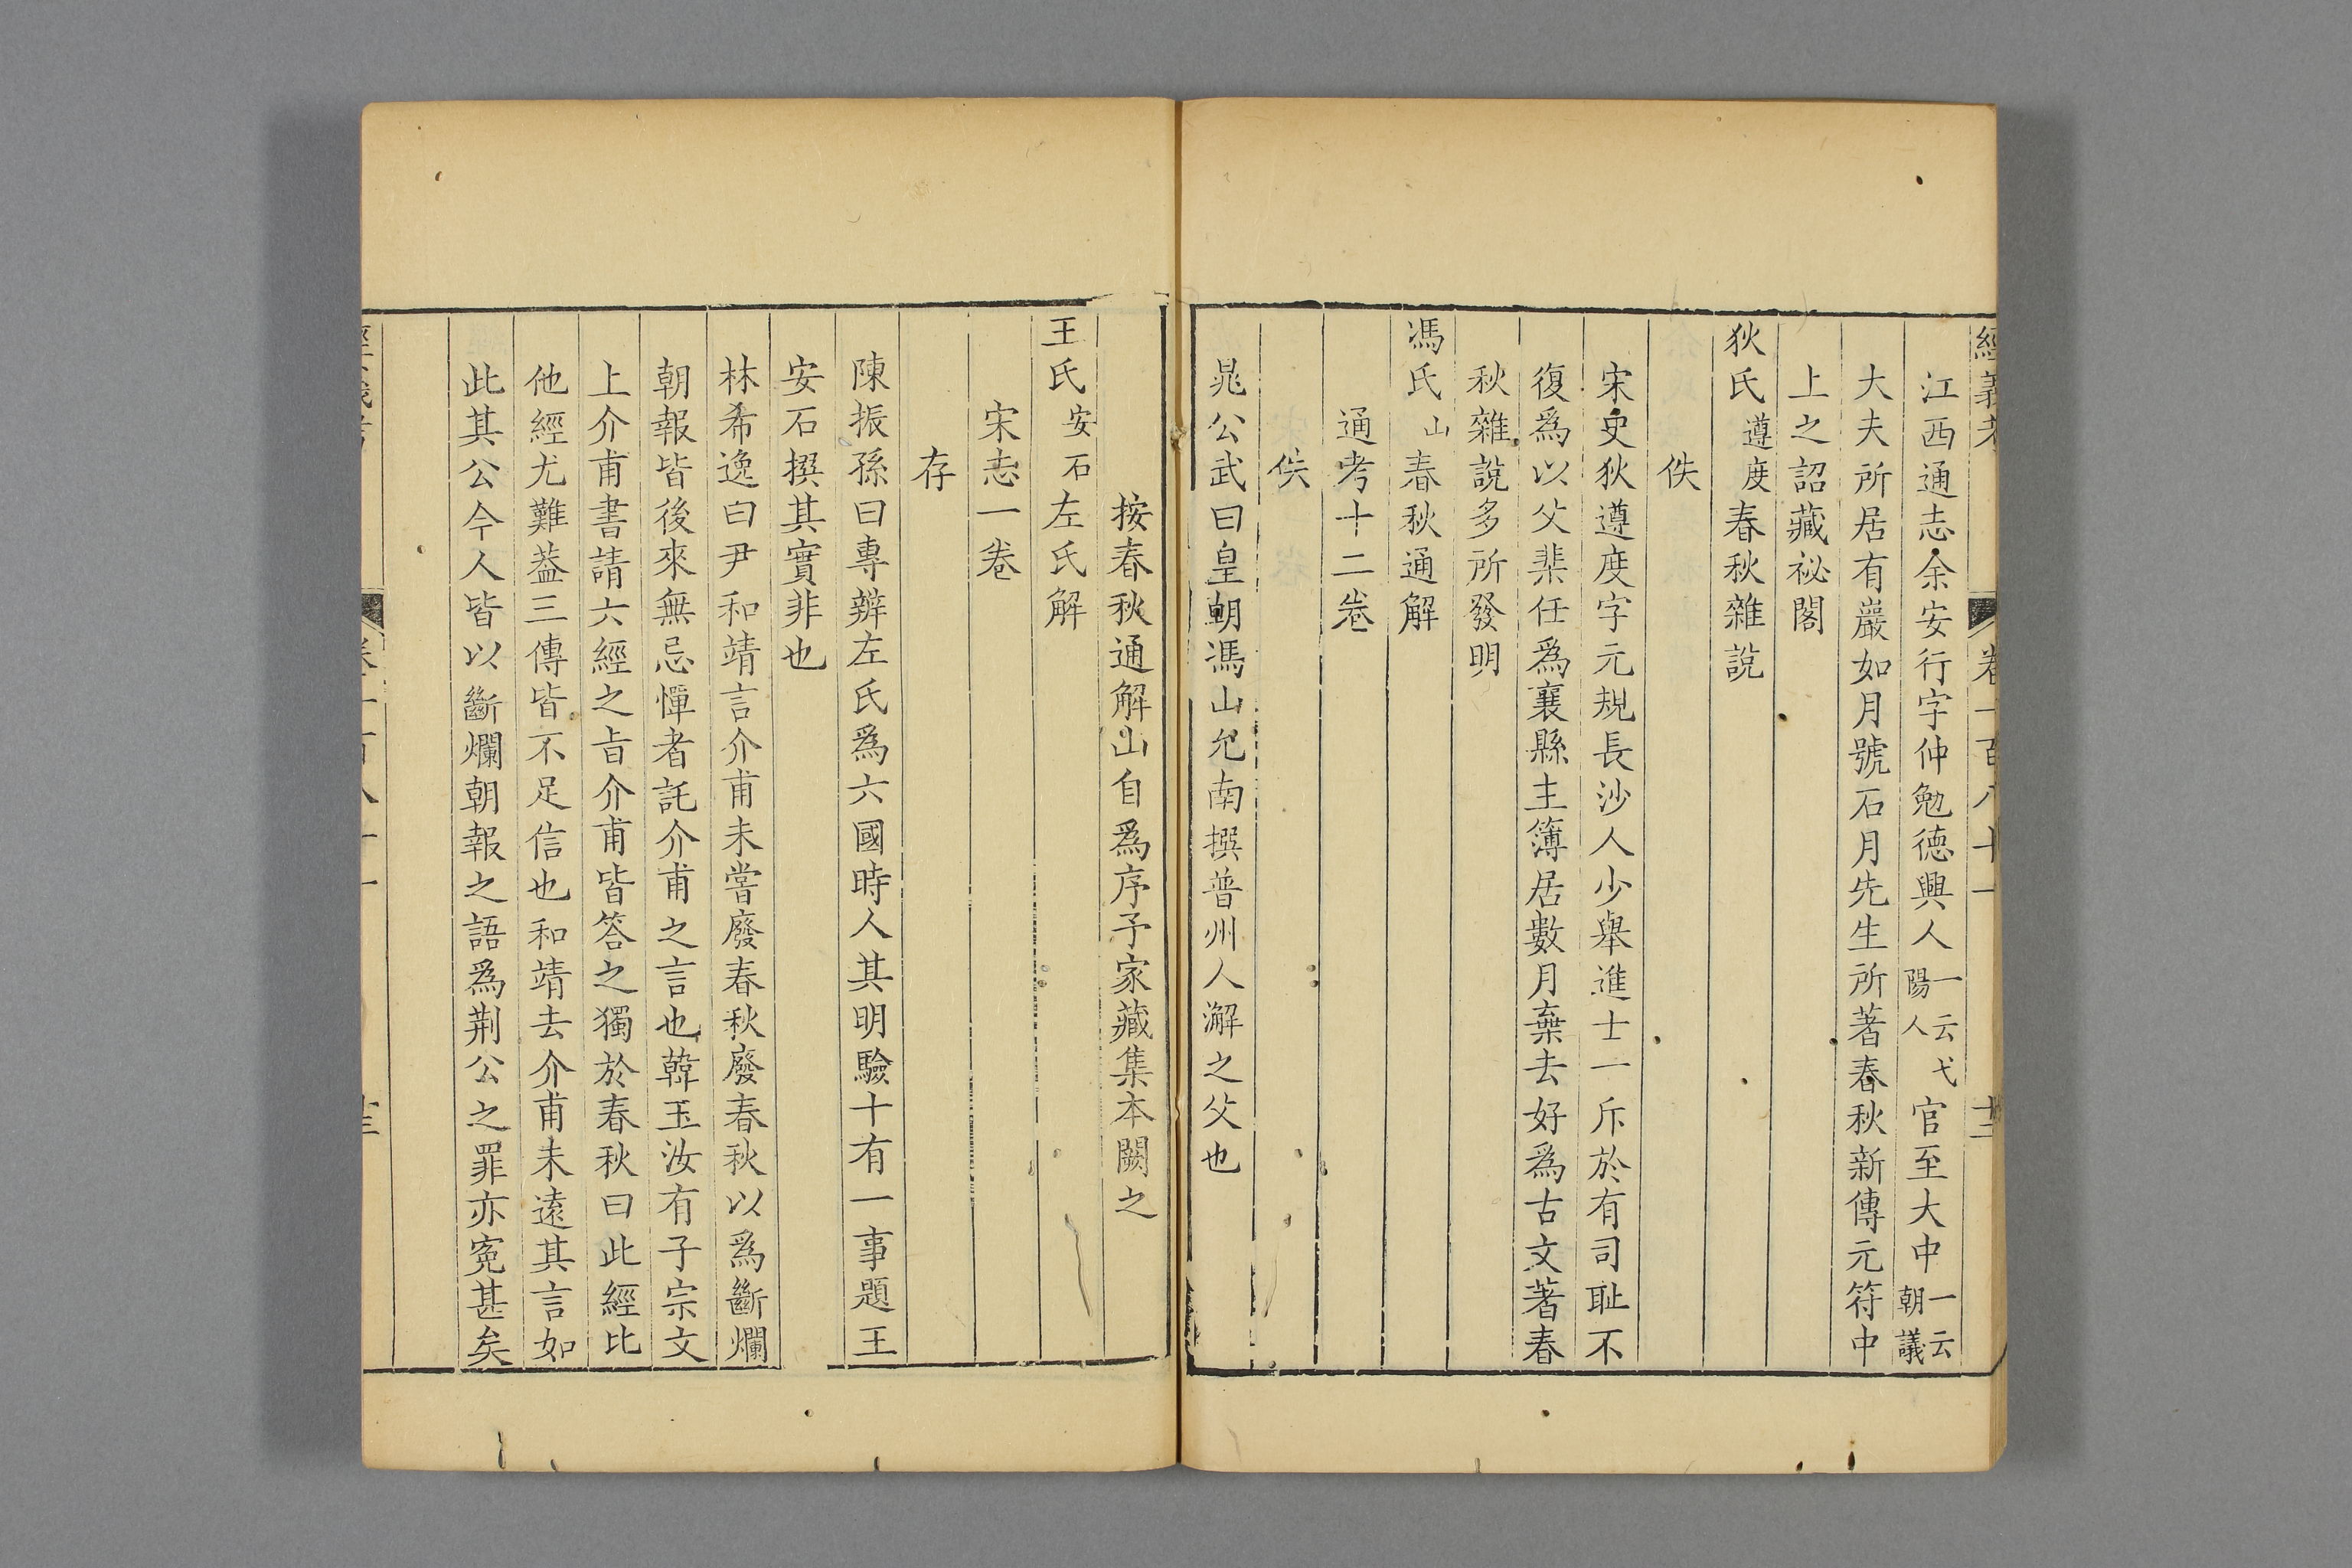 經義考 卷一百八十一 十三
江西通志余安行字仲勉德興人一云弋陽人官至大中一云朝議
大夫所居有巖如月號石月先生所著春秋新傳元符中
上之詔藏祕閣
狄氏遵度春秋雜說
佚
宋史狄遵度字元規長沙人少舉進士一斥於有司耻不
復爲以父棐任爲襄縣主簿居數月棄去好爲古文著春
秋雜說多所發明
馮氏山春秋通解
通考十二卷
佚
晁公武曰皇朝馮山允南撰普州人澥之父也
按春秋通解山自爲序予家藏集本闕之
王氏安石左氏解
宋志一卷
存
陳振孫曰專辨左氏爲六國時人其明驗十有一事題王
安石撰其實非也
林希逸曰尹和靖言介甫未嘗廢春秋廢春秋以爲斷爛
朝報皆後來無忌憚者託介甫之言也韓玉汝有子宗文
上介甫書請六經之旨介甫皆答之獨於春秋曰此經比
他經尤難葢三傳皆不足信也和靖去介甫未遠其言如
此其公今人皆以斷爛朝報之語爲荆公之罪亦寃甚矣